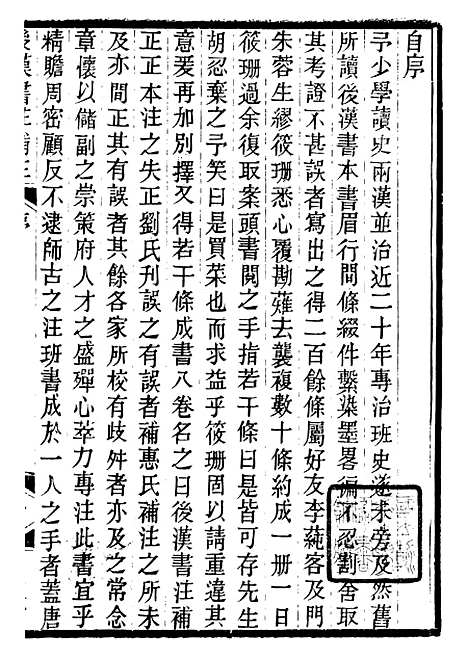 自序
予少學讀史兩漢並治近二十年專治班史遂未旁及然舊
所讀後漢書本書眉行間條綴件繫染墨畧徧不忍割舍取
其考證不甚誤者寫出之得二百餘條屬好友李蒓客及門
朱蓉生繆筱珊悉心覆勘薙去襲複數十條約成一册一日
筱珊過余復取案頭書閱之手指若干條曰是皆可存先生
胡忍棄之予笑曰是買菜也而求益乎筱珊固以請重違其
意爰再加別擇又得若干條成書八卷名之曰後漢書注補
正正本注之失正劉氏刊誤之有誤者補惠氏補注之所未
及亦間正其有誤者其餘各家所校有歧舛者亦及之常念
章懷以儲副之崇策府人才之盛殫心萃力專注此書宜乎
精贍周密顧反不逮師古之注班書成於一人之手者蓋唐
後漢書注補正 序